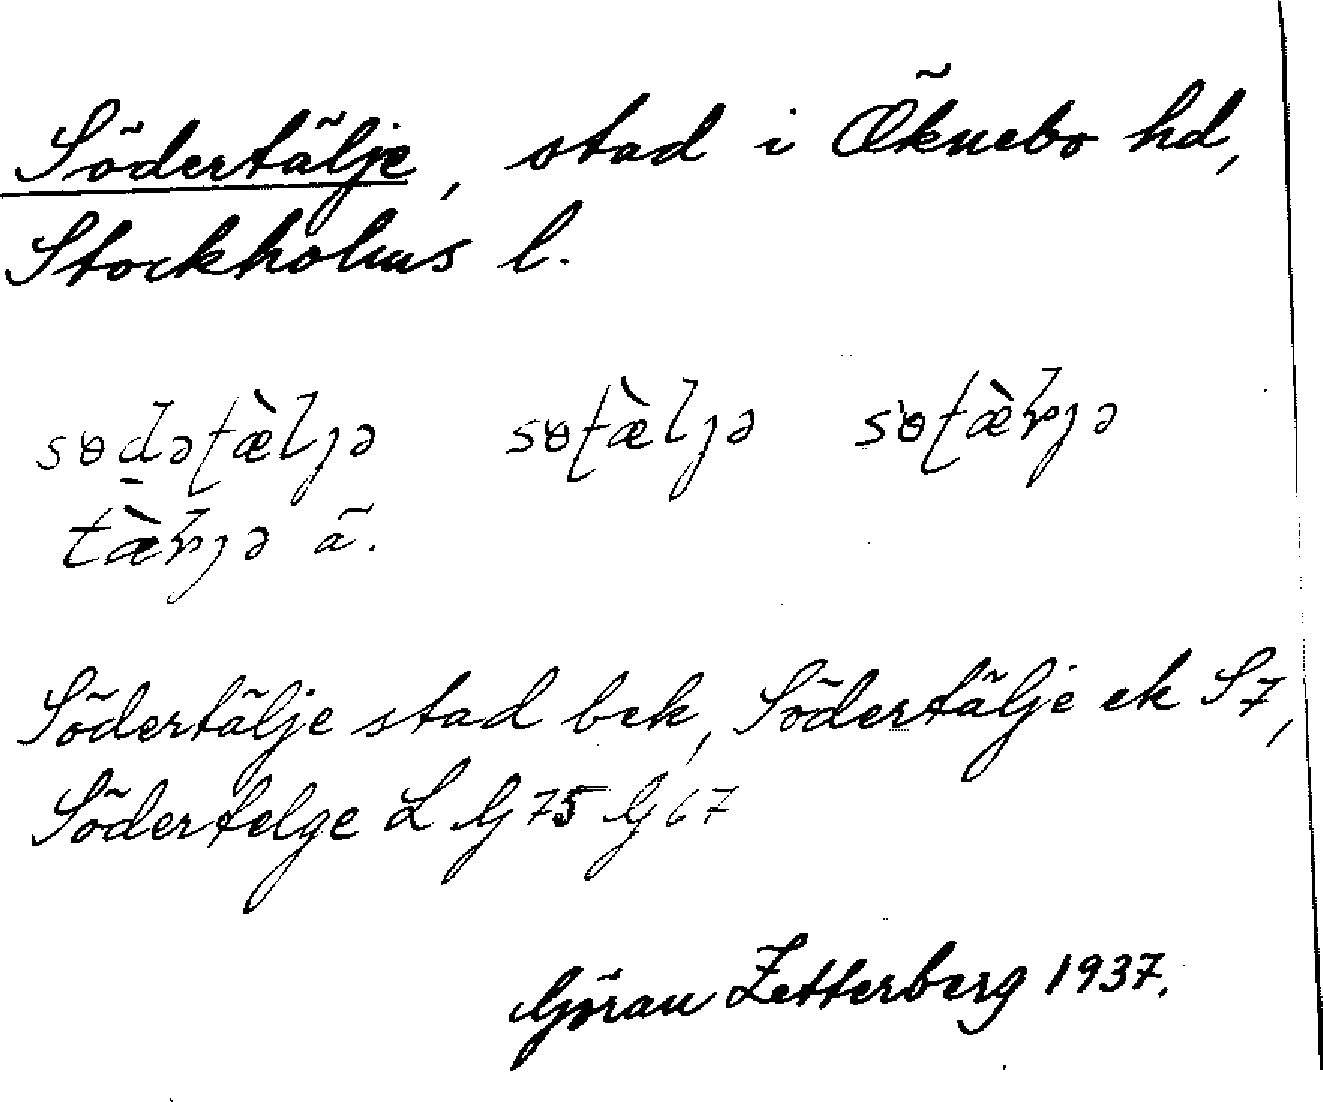 Södertälje, stad i Öknebo hd,
Stockholms l.
sɵdəʈæ̀lȷə sɵʈæ̀lȷə sɵʈæ̀ɽȷə
tæ̀ɽȷə ä.
Södertälje stad bek, Södertälje ek S7,
Södertelge L G75 G67
Göran Zetterberg 1937.